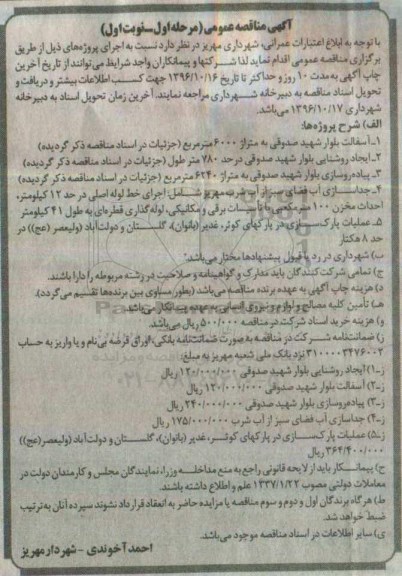 آگهی مناقصه عمومی (مرحله اول_نوبت اول)
با توجه به ابلاغ اعتبارات عمرانی، شهرداری مهریز در نظر دارد نسبت به اجرای پروژه‌های ذیل از طریق
برگزاری مناقصه عمومی اقدام نماید لذا شرکتها و پیمانکاران واجد شرایط می‌توانند از تاریخ آخرین
چاپ آگهی به مدت ۱۰ روز و حداکثر تا تاریخ ۱۳۹۶/۱۰/۱۶ جهت کسب اطلاعات بیشتر و دریافت و
تحویل اسناد مناقصه به دبیرخانه شهرداری مراجعه نمایند. آخرین زمان تحویل اسناد به دبیرخانه
شهرداری ۱۳۹۶/۱۰/۱۷ می‌باشد.
الف) شرح پروژه‌ها:
۱_ آسفالت بلوار شهید صدوقی به متراژ ۶۰۰۰ مترمربع (جزئیات در اسناد مناقصه ذکر گردیده)
۲_ ایجاد روشنایی بلوار شهید صدوقی در حد ۷۸۰ متر طول (جزئیات در اسناد مناقصه ذکر گردیده)
۳_ پیاده‌روسازی بلوار شهید صدوقی به متراژ ۶۲۴۰ مترمربع (جزئیات در اسناد مناقصه ذکر گردیده)
۴_ جداسازی آب فضای سبز از آب شرب مهریز شامل: اجرای خط لوله اصلی در حد ۱۲ کیلومتر،
احداث مخزن ۱۰۰ مترمکعبی با تأسیسات برقی و مکانیکی، لوله‌گذاری قطره‌ای به طول ۴۱ کیلومتر
۵_ عملیات پارک‌سازی در پارکهای کوثر، غدیر (بانوان)، گلستان و دولت‌آباد (ولیعصر (عج)) در
حد ۸ هکتار
ب) شهرداری در رد یا قبول پیشنهادها مختار می‌باشد.
ج) تمامی شرکت‌کنندگان باید مدارک و گواهینامه و صلاحیت در رشته مربوطه را دارا باشند.
د) هزینه چاپ آگهی به عهده برنده مناقصه می‌باشد (بطور مساوی بین برنده‌ها تقسیم می‌گردد).
هـ) تأمین کلیه مصالح و لوازم و نیروی انسانی به عهده پیمانکار می‌باشد.
و) هزینه خرید اسناد شرکت در مناقصه ۵۰۰/۰۰۰ ریال می‌باشد.
ز) ضمانتنامه شرکت در مناقصه به صورت ضمانتنامه بانکی، اوراق قرضه بی‌نام و یا واریز به حساب
نزد بانک ملی شعبه مهریز به مبلغ:
ز_۱) ایجاد روشنایی بلوار شهید صدوقی ۱۲۰/۰۰۰/۰۰۰ ریال
ز_۲) آسفالت بلوار شهید صدوقی ۱۲۰/۰۰۰/۰۰۰ ریال
ز_۳) پیاده‌روسازی بلوار شهید صدوقی ۲۴۰/۰۰۰/۰۰۰ ریال
ز_۴) جداسازی آب فضای سبز از آب شرب ۱۷۵/۰۰۰/۰۰۰ ریال
ز_۵) عملیات پارک‌سازی در پارکهای کوثر، غدیر (بانوان)، گلستان و دولت‌آباد (ولیعصر (عج))
۳۶۴/۴۰۰/۰۰۰ ریال
ح) پیمانکار باید از لایحه قانونی راجع به منع مداخله وزرا، نمایندگان مجلس و کارمندان دولت در
معاملات دولتی مصوب ۱۳۳۷/۱/۲۲ علم و اطلاع داشته باشند.
ط) هرگاه برندگان اول و دوم و سوم مناقصه یا مزایده حاضر به انعقاد قرارداد نشوند سپرده آنان به ترتیب
ضبط خواهد شد.
ی) سایر اطلاعات در اسناد مناقصه موجود می‌باشد.
احمد آخوندی - شهردار مهریز